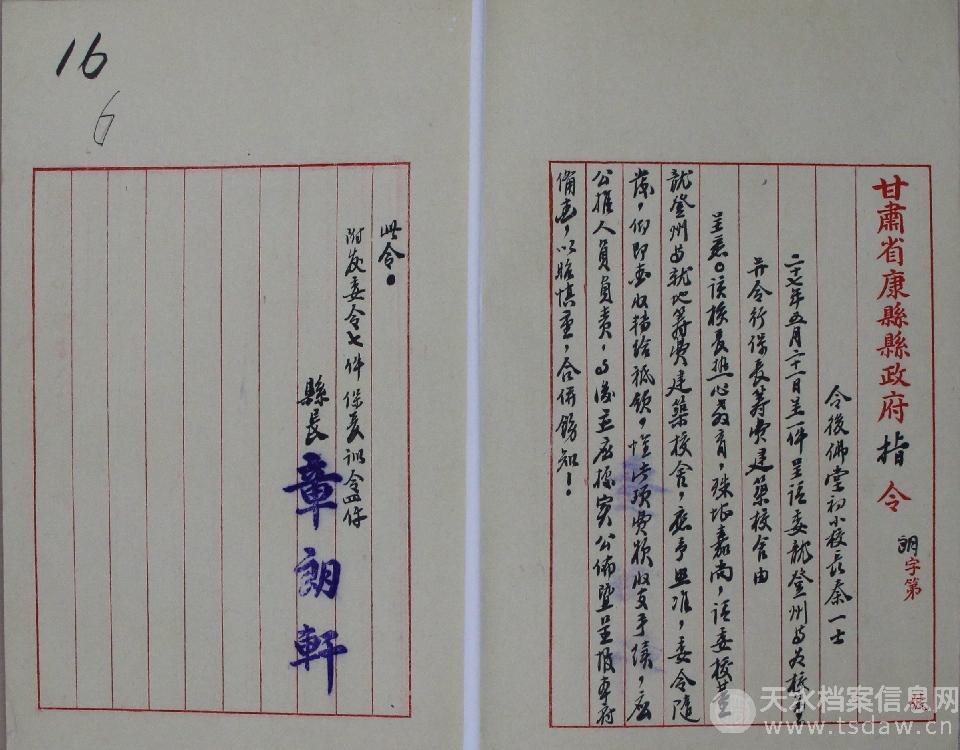 甘肅省康縣縣政府指令 朗字第 號
令後佛堂初小校長秦一士
二十七年五月二十一日呈一件呈請委龍登州等為校董
并令行保長籌費建築校舍由
呈悉。該校長熱心教育，殊堪嘉尚，請委校董
龍登州等就地籌費建築校舍，應予照准，委令隨
發，仰即查收轉給祗領，惟此項費款收支手續，應
公推人員負責，事後並應據實公佈暨呈報本府
備查，以昭慎重，合併飭知！
此令。
附發委令七件 保長訓令四件
縣長 章朗軒
16
6
天水档案信息网
www.tsdaw.cn